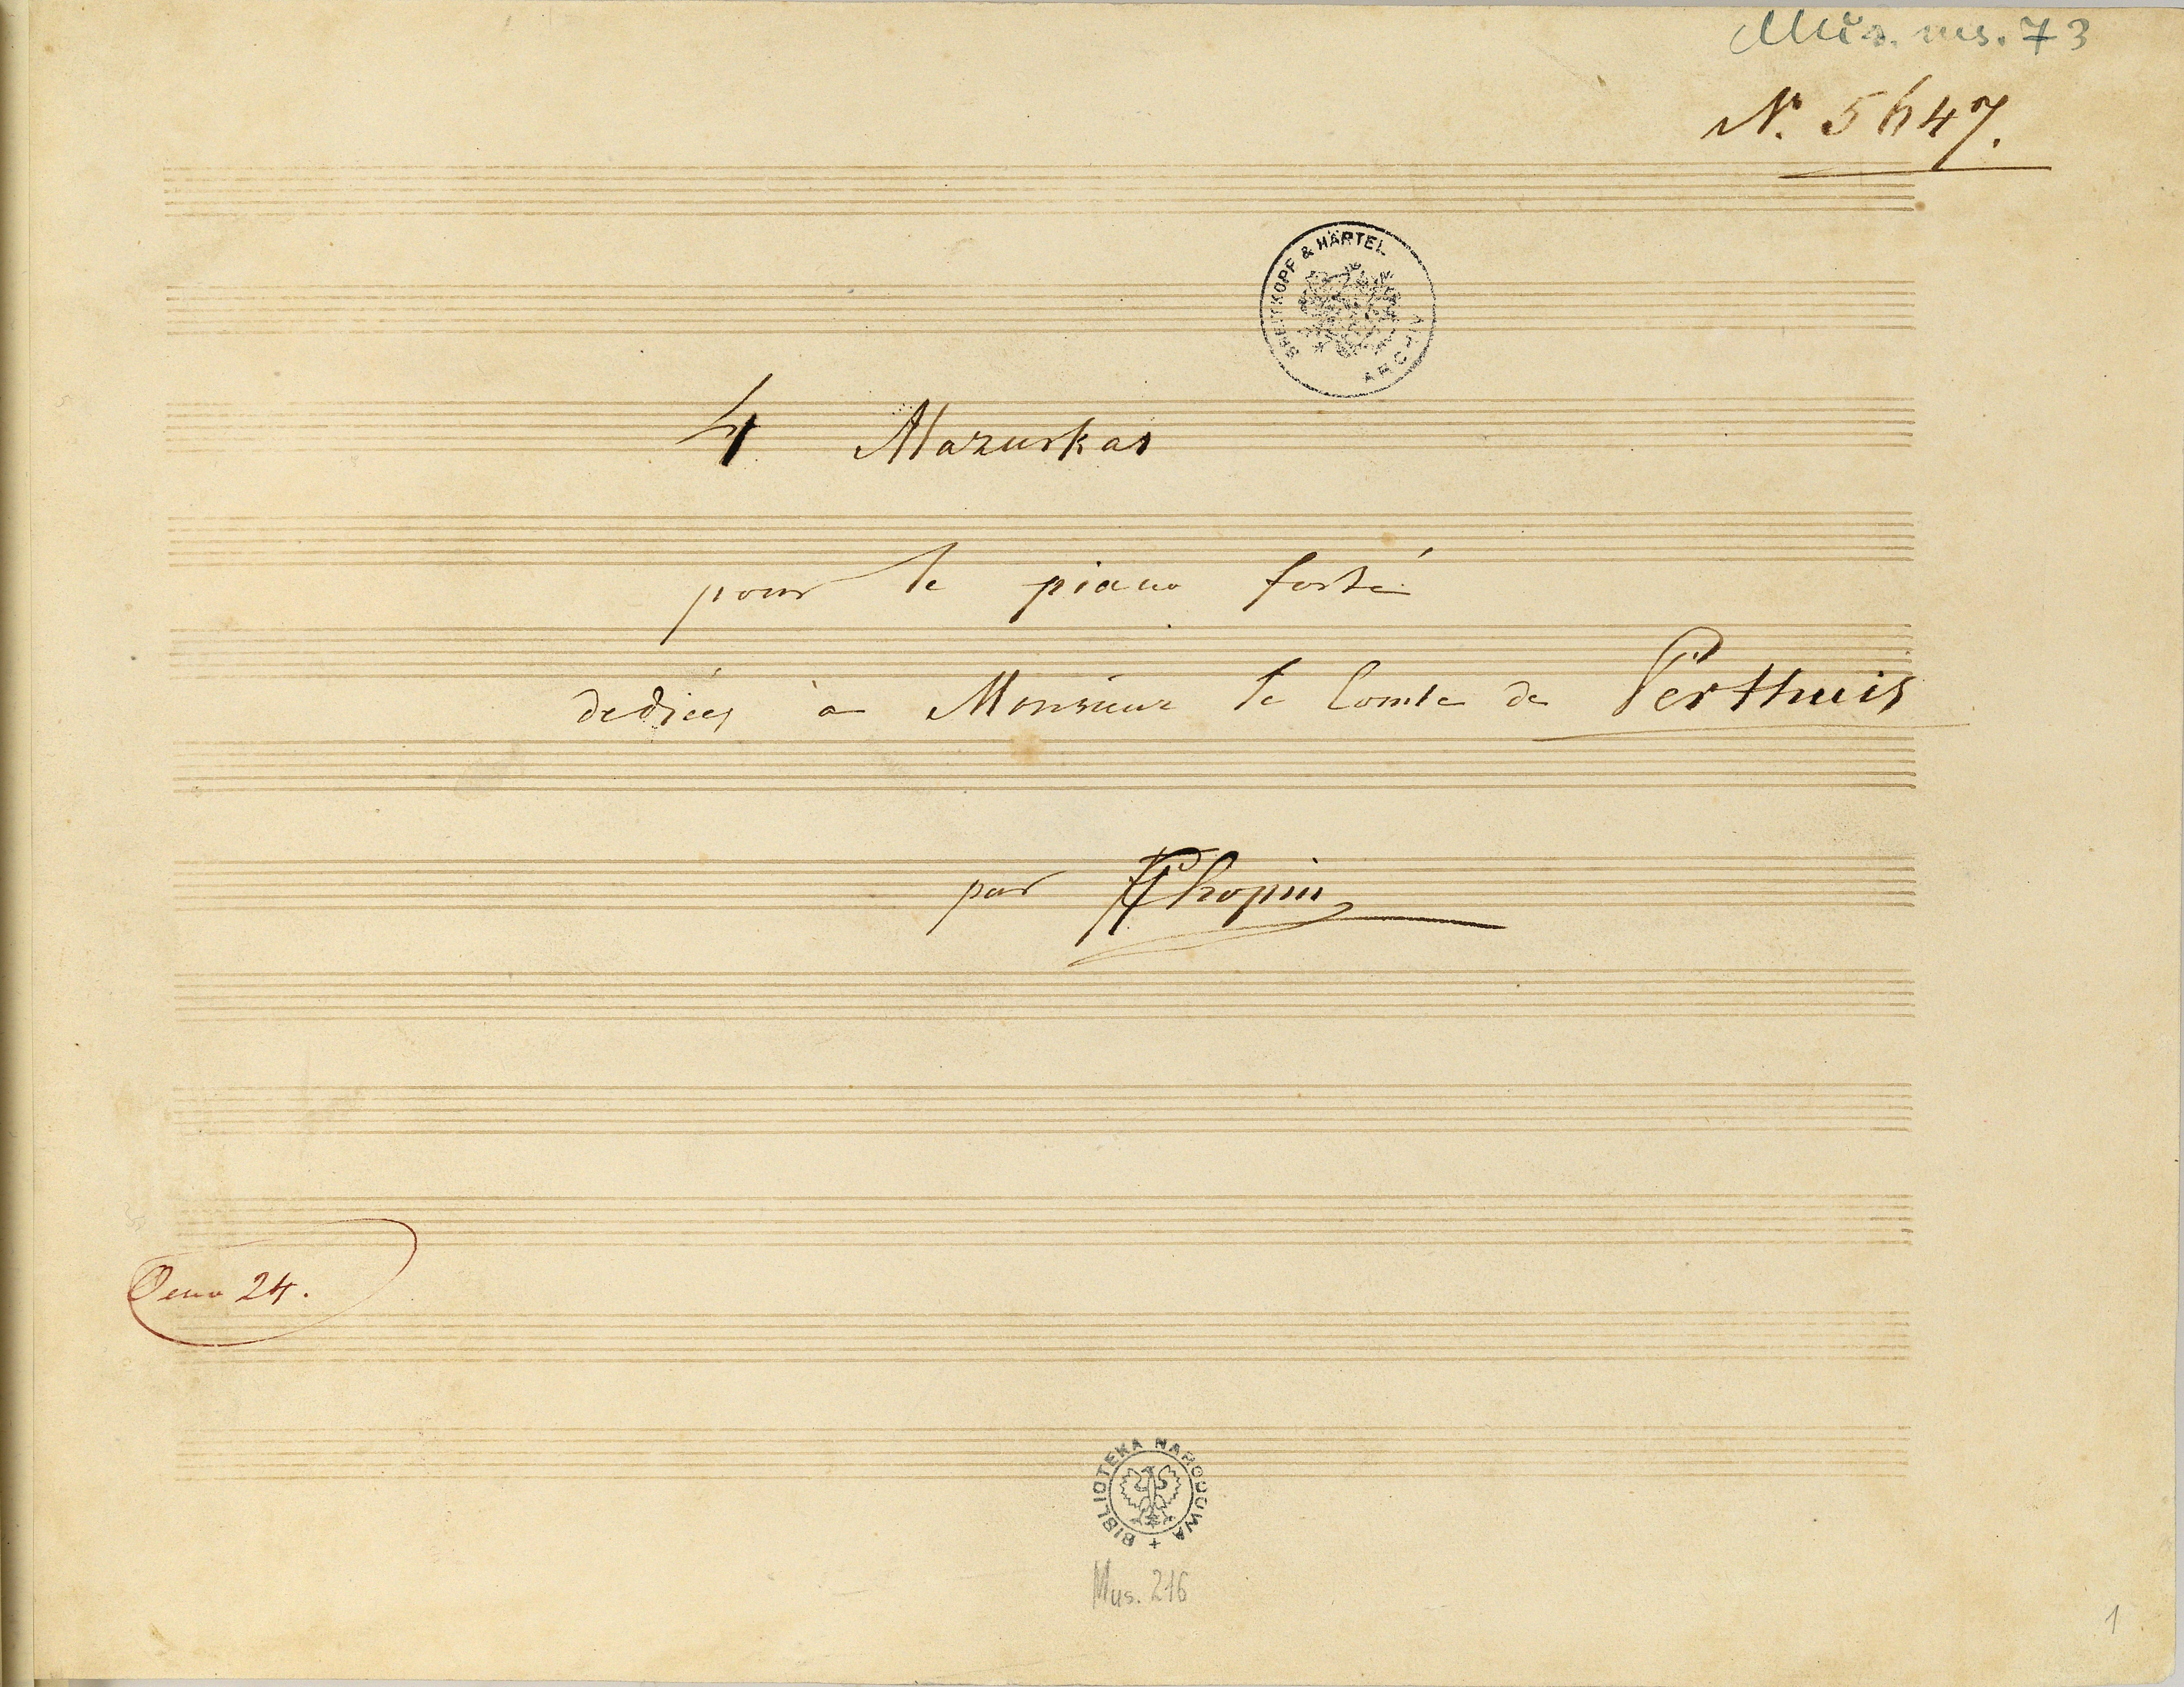 Mus. ms. 73
N. 5647.
BREITKOPF & HÄRTEL
ARCHIV
4 Mazurkas
pour le piano forté
dediées à Monsieur le Comte de Perthuis
par FChopin
Oeuv 24.
BIBLIOTEKA NARODOWA +
Mus. 216
1